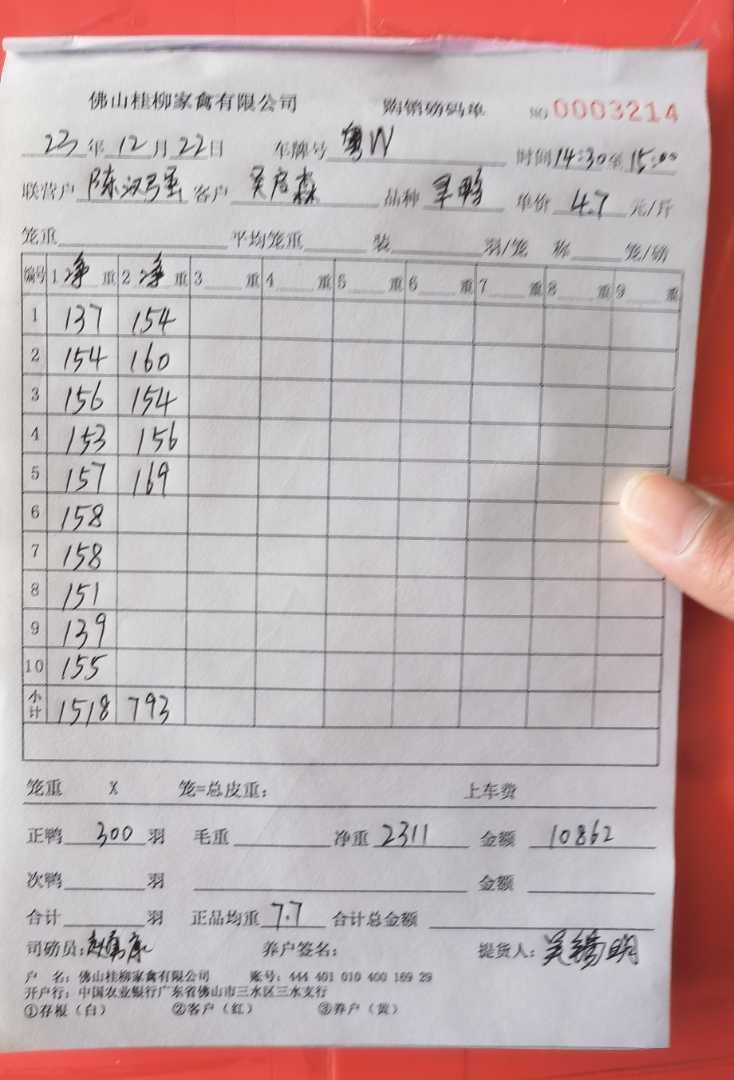 佛山桂柳家禽有限公司 购销磅码单 NO 0003214
23年12月22日 车牌号 粤W 时间14:30至15:00
联营户 陈汉强 客户 品种 旱鸭 单价 4.7 元/斤
笼重 平均笼重 装 羽/笼 称 笼/磅
编号 1 净 重 2 净 重 3 重 4 重 5 重 6 重 7 重 8 重 9 重
1 137 154
2 154 160
3 156 154
4 153 156
5 157 169
6 158
7 158
8 151
9 139
10 155
小计 1518 793
笼重 X 笼=总皮重: 上车费
正鸭 300 羽 毛重 净重 2311 金额 10862
次鸭 羽 金额
合计 羽 正品均重 7.7 合计总金额
司磅员: 养户签名: 提货人:
户 名: 佛山桂柳家禽有限公司 账号: 444 401 010 400 169 29
开户行: 中国农业银行广东省佛山市三水区三水支行
①存根(白) ②客户(红) ③养户(黄)